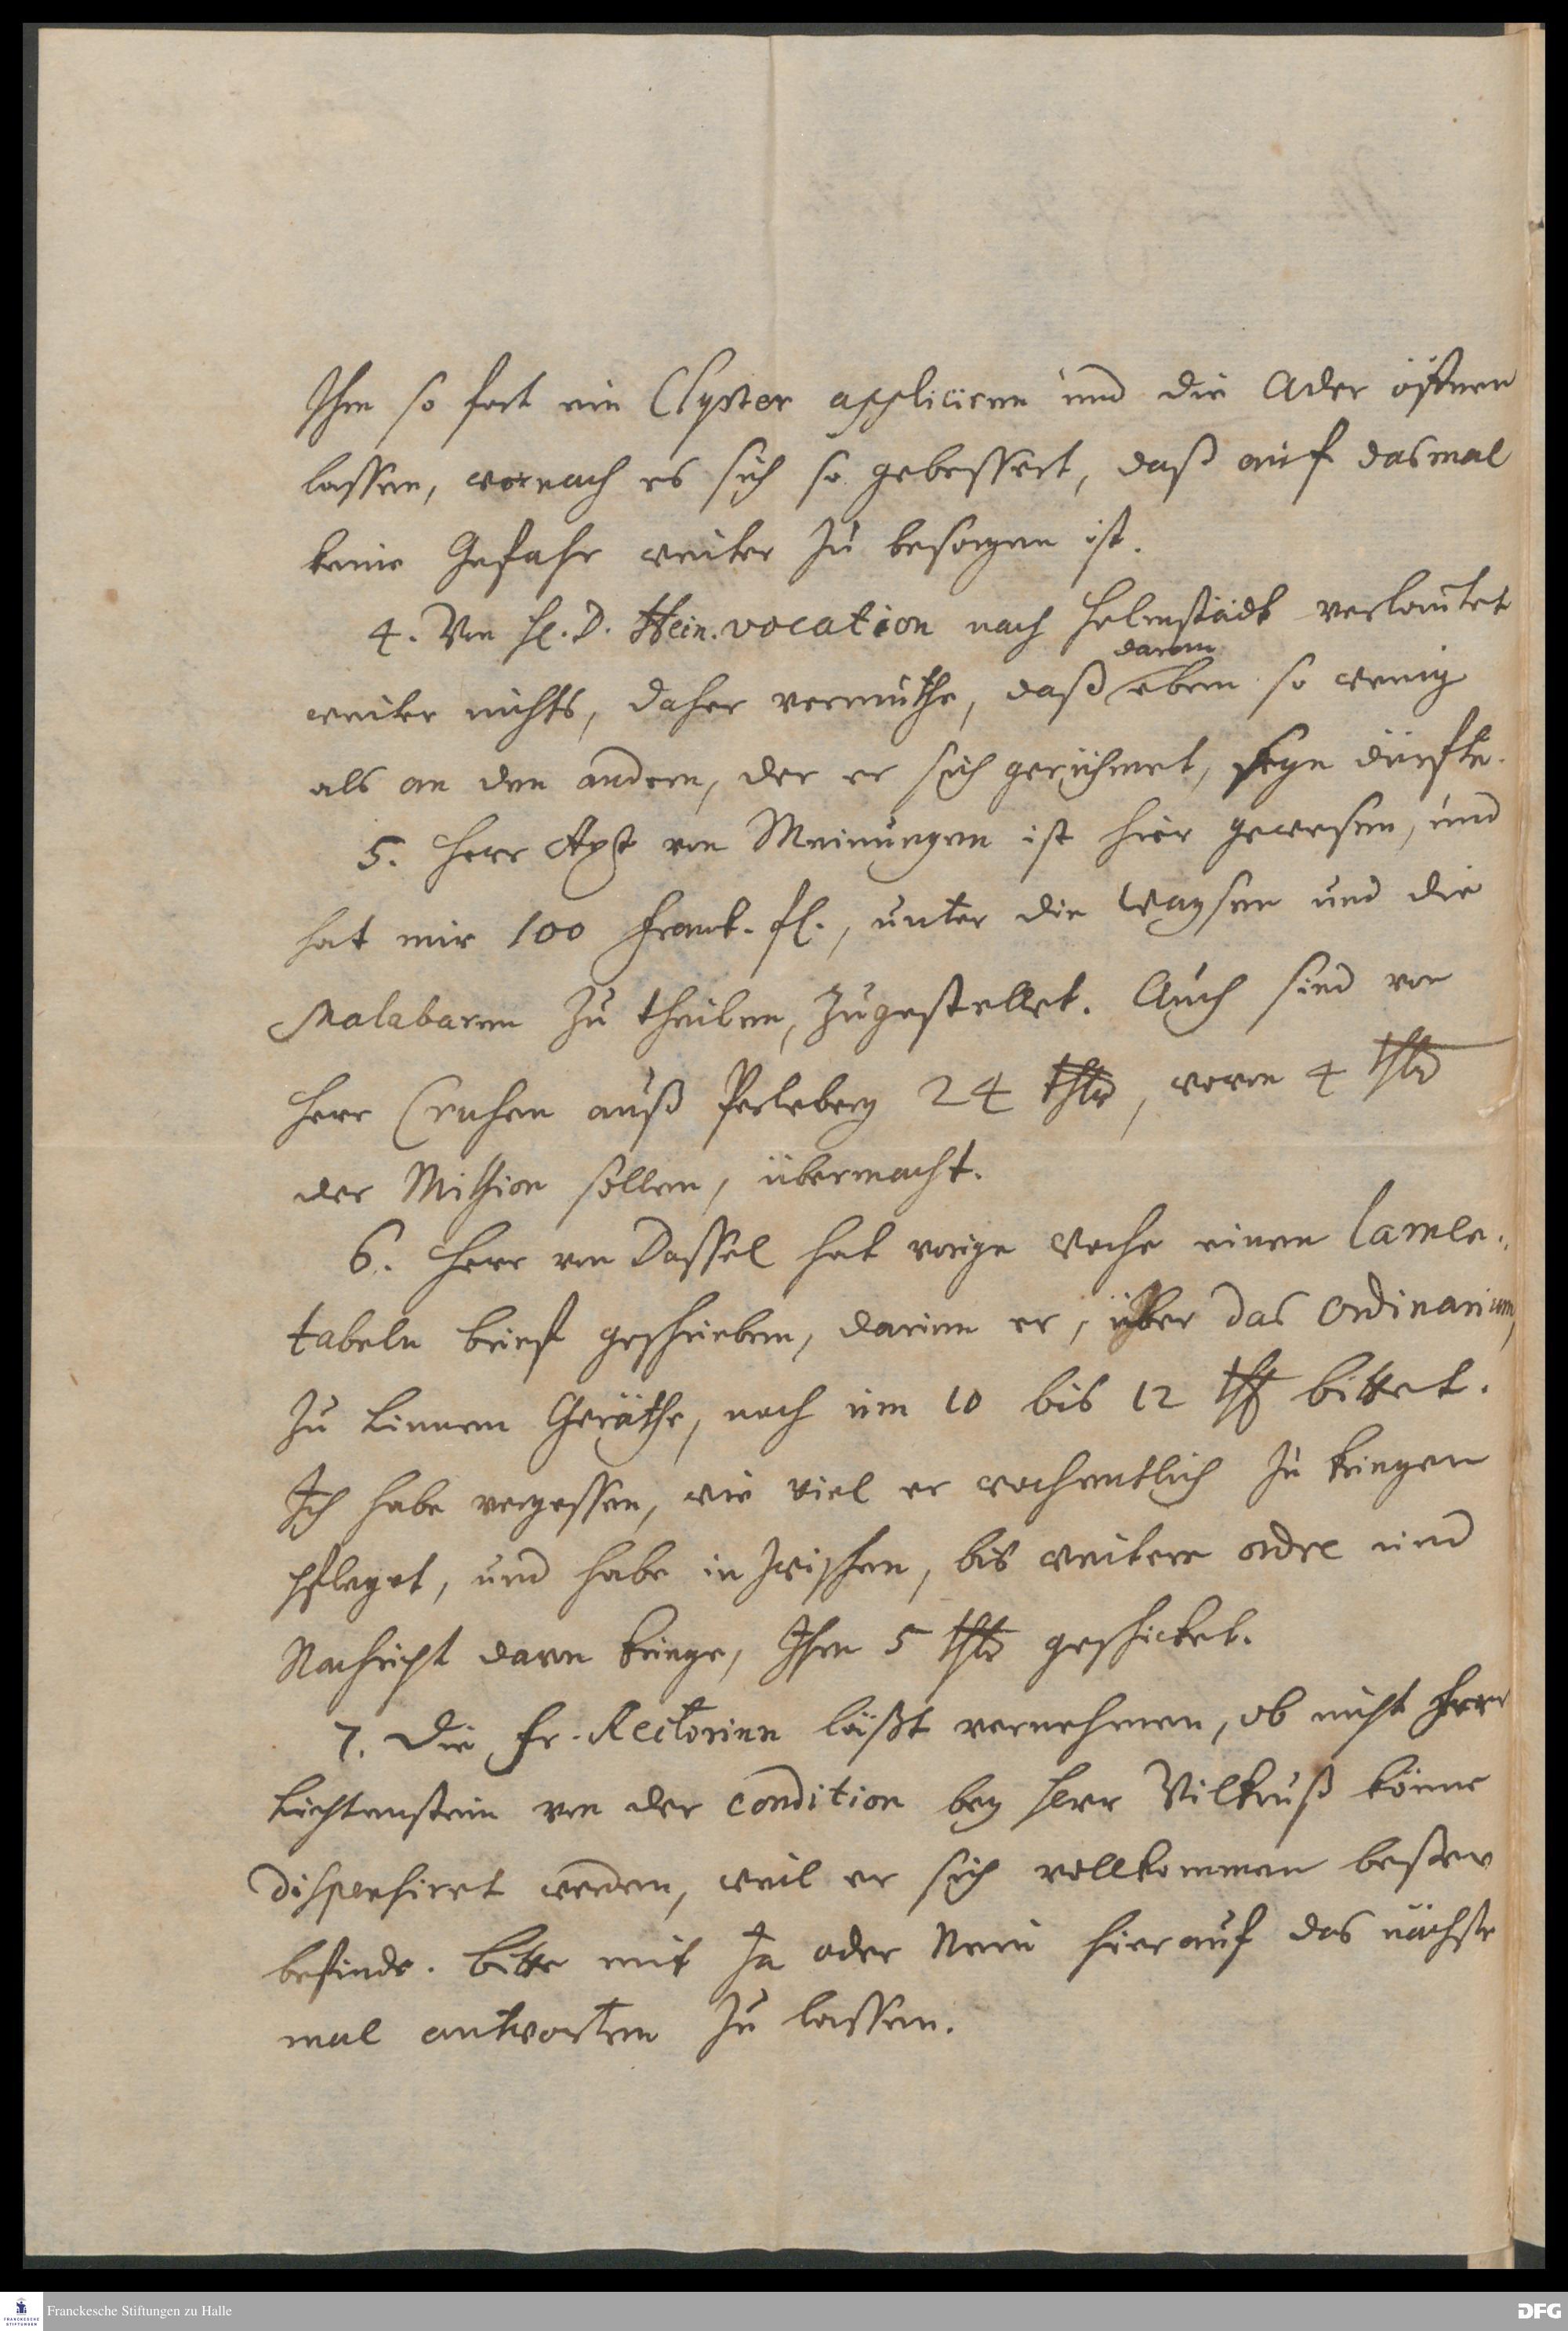 Ihm so fort ein Clyster appliciren und die Ader öffnen
lassen, wornach es sich so gebessert, daß auf dasmal
keine Gefahr weiter zu besorgen ist.
4. Von H. D. Hein. vocation nach Helmstädt verlautet
weiter nichts, daher vermuthe, daß daran eben so wenig
als an den andern, der er sich gerühmet, seyn dürfte.
5. Herr Apt von Meinungen ist hier gewesen, und
hat mir 100 Franck. fl., unter die Waysen und die
Malabaren zu theilen, zugestellet. Auch sind von
Herr Crusen auß Perleberg 24 thlr, wovon 4 thlr
der Mission sollen, übermacht.
6. Herr von Dassel hat vorige Woche einen lamen-
tabeln brief geschrieben, darinn er, über das Ordinarium,
zu Linnen Geräthe, noch um 10 bis 12 thl bittet.
Ich habe vergessen, wie viel er wochentlich zu kriegen
pfleget, und habe inzwischen, bis weitere ordre und
Nachricht davon kriege, Ihm 5 thlr geschicket.
7. Die Fr. Rectorinn läßt vernehmen, ob nicht Herr
Lichtenstein von der condition bey Herr Vilkruß könne
dispensiret werden, weil er sich vollkommen besser
befinde. Bitte mit Ja oder Nein hierauf das nächste
mal antworten zu lassen.
Franckesche Stiftungen zu Halle
DFG